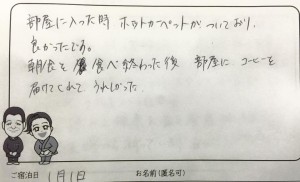 部屋に入った時 ホットカーペットがついており、
良かったです。
朝食を食べ終わった後 部屋に コーヒーを
届けてくれて うれしかった。
ご宿泊日 1月1日 お名前(匿名可)